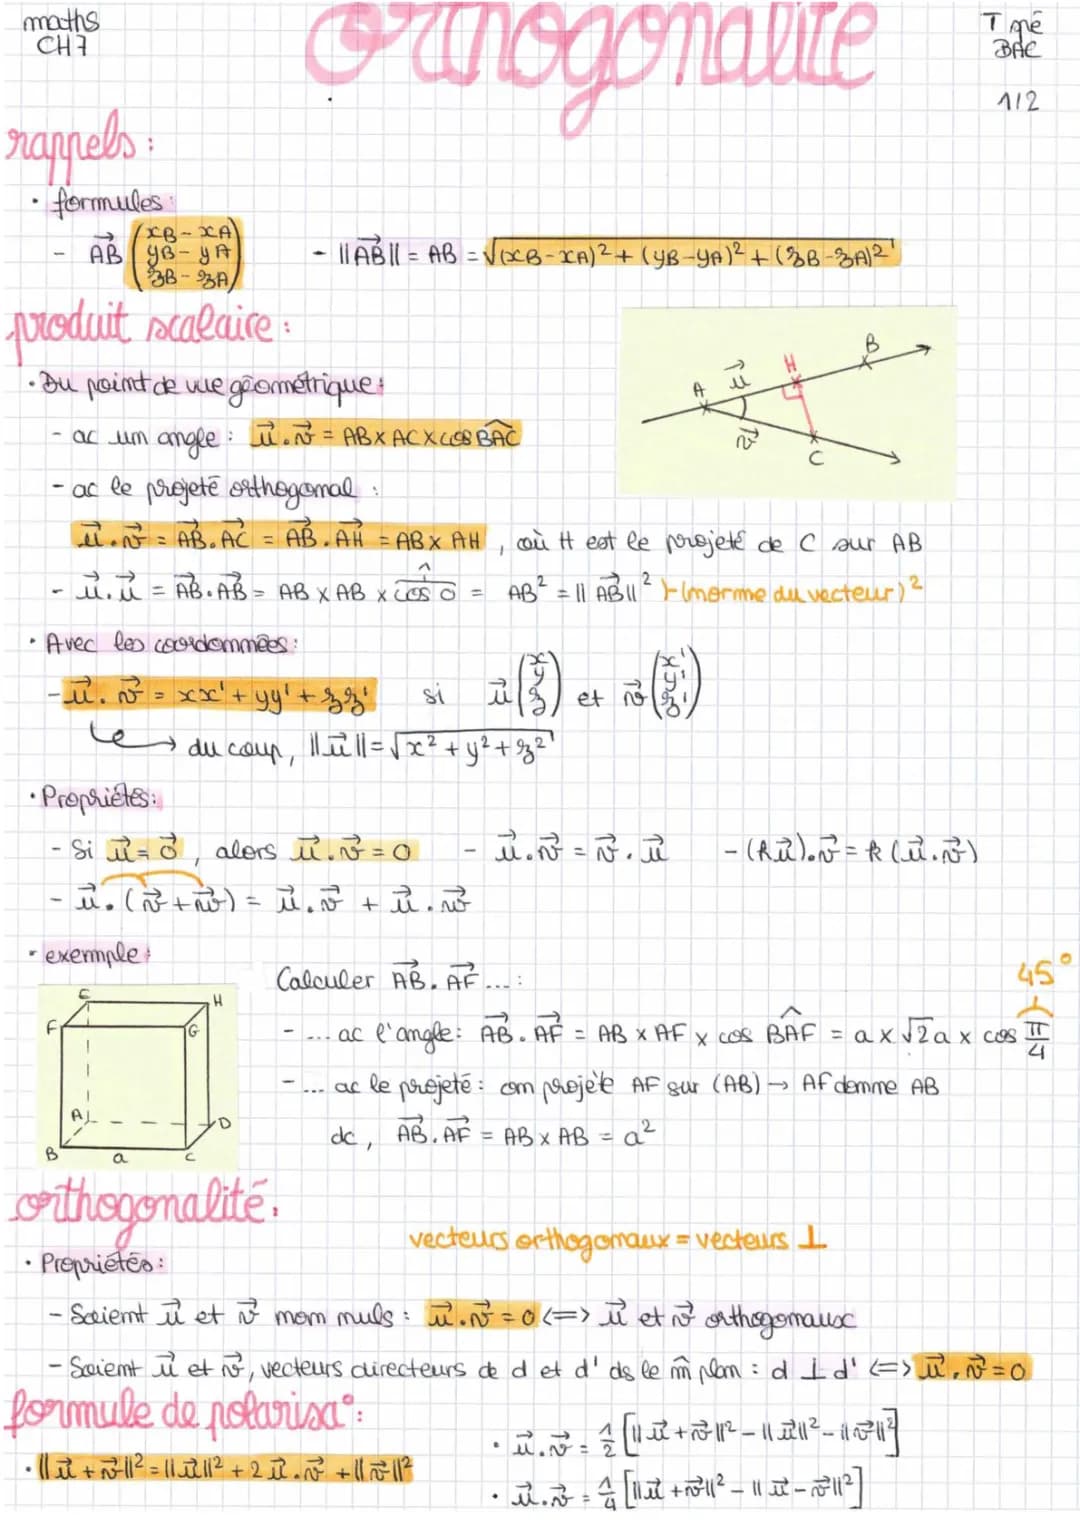 maths
CH7
Orthogonalité
T gné
BAC
1/2
rappels :
• formules :
- AB⃗ (xB - xA
yB - yA
zB - zA)
- ||AB⃗|| = AB = √(xB-xA)² + (yB-yA)² + (zB-zA)²
produit scalaire :
• Du point de vue géométrique :
- ac un angle : u⃗.v⃗ = AB x AC x cos BAC
- ac le projeté orthogonal :
u⃗.v⃗ = AB⃗.AC⃗ = AB⃗.AH⃗ = AB x AH, où H est le projeté de C sur AB
1
- u⃗.u⃗ = AB⃗.AB⃗ = AB x AB x cos 0 = AB² = ||AB⃗||² } (norme du vecteur)²
A u⃗ H B
v⃗ C
• Avec les coordonnées :
- u⃗.v⃗ = xx' + yy' + zz' si u⃗ (x y z) et v⃗ (x' y' z')
↳ du coup, ||u⃗|| = √x² + y² + z²
• Propriétés :
- Si u⃗ = 0⃗, alors u⃗.v⃗ = 0 - u⃗.v⃗ = v⃗.u⃗ - (ku⃗).v⃗ = k(u⃗.v⃗)
- u⃗.(v⃗ + w⃗) = u⃗.v⃗ + u⃗.w⃗
• exemple :
E H
F G
A D
B a C
Calculer AB⃗.AF⃗ ... :
45°
- ... ac l'angle : AB⃗.AF⃗ = AB x AF x cos BAF = a x √2a x cos π/4
- ... ac le projeté : on projète AF sur (AB) → AF donne AB
dc, AB⃗.AF⃗ = AB x AB = a²
orthogonalité :
vecteurs orthogonaux = vecteurs ⊥
• Propriétés :
- Soient u⃗ et v⃗ non nuls : u⃗.v⃗ = 0 <=> u⃗ et v⃗ orthogonaux
- Soient u⃗ et v⃗, vecteurs directeurs de d et d' ds le m̂ plan : d ⊥ d' <=> u⃗.v⃗ = 0
formule de polarisa° :
• ||u⃗ + v⃗||² = ||u⃗||² + 2 u⃗.v⃗ + ||v⃗||²
• u⃗.v⃗ = 1/2 [||u⃗ + v⃗||² - ||u⃗||² - ||v⃗||²]
• u⃗.v⃗ = 1/4 [||u⃗ + v⃗||² - ||u⃗ - v⃗||²]